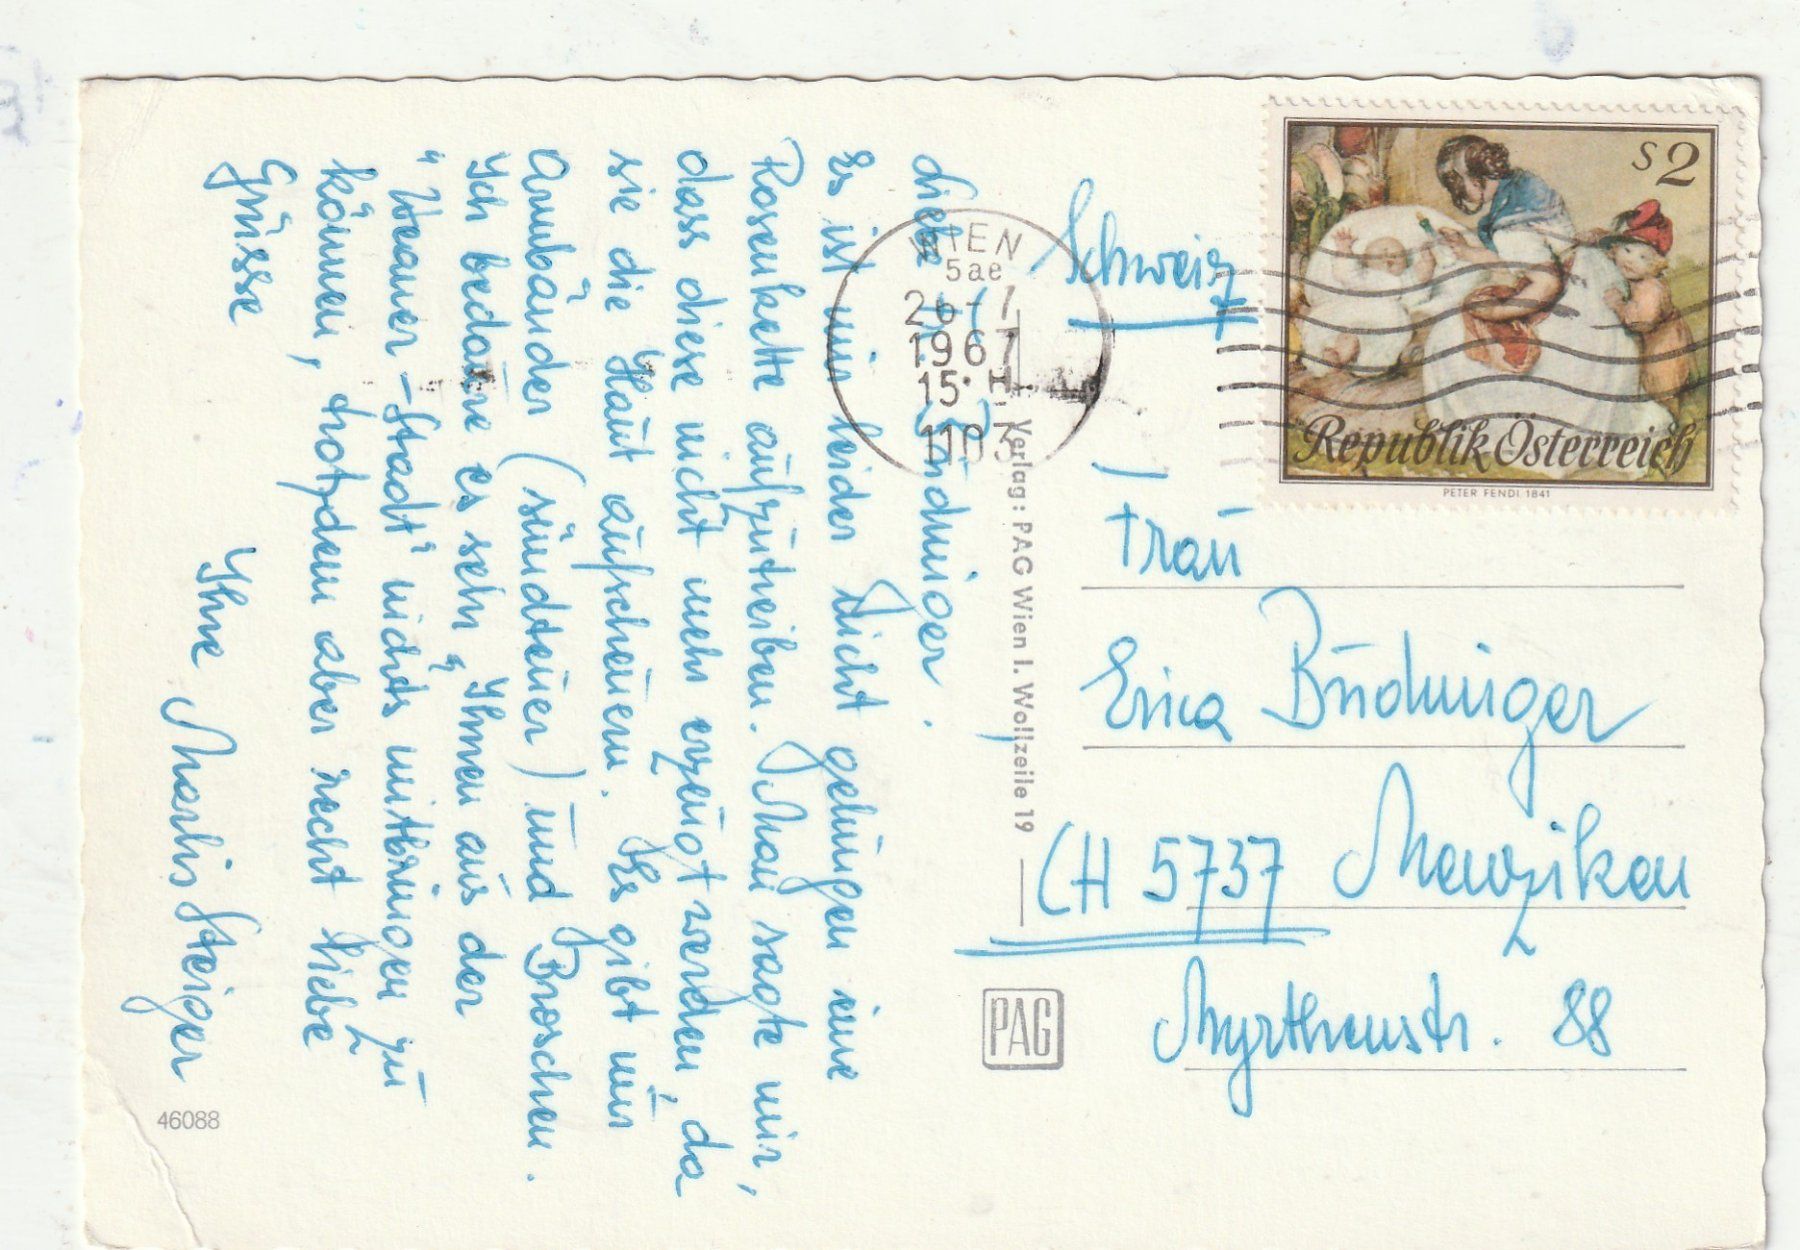 Liebe Erika Büdminger.
Es ist mir leider nicht gelungen eine
Rosenkette aufzutreiben. Man sagte mir,
dass diese nicht mehr erzeugt werden, da
sie die Haut aufscheuern. Es gibt nur
Armbänder (sündteuer) und Broschen.
Ich bedaure es sehr, Ihnen aus der
"Weaner-Stadt" nichts mitbringen zu
können, trotzdem aber recht liebe
Grüsse
Ihre Marlis Steiger
46088
WIEN
5ae
26-7
1967
15·H
1103
Verlag: PAG Wien I. Wollzeile 19
PAG
S2
Republik Österreich
PETER FENDI 1841
Schweiz
Frau
Erica Büdminger
CH 5737 Menzikon
Myrthenstr. 88